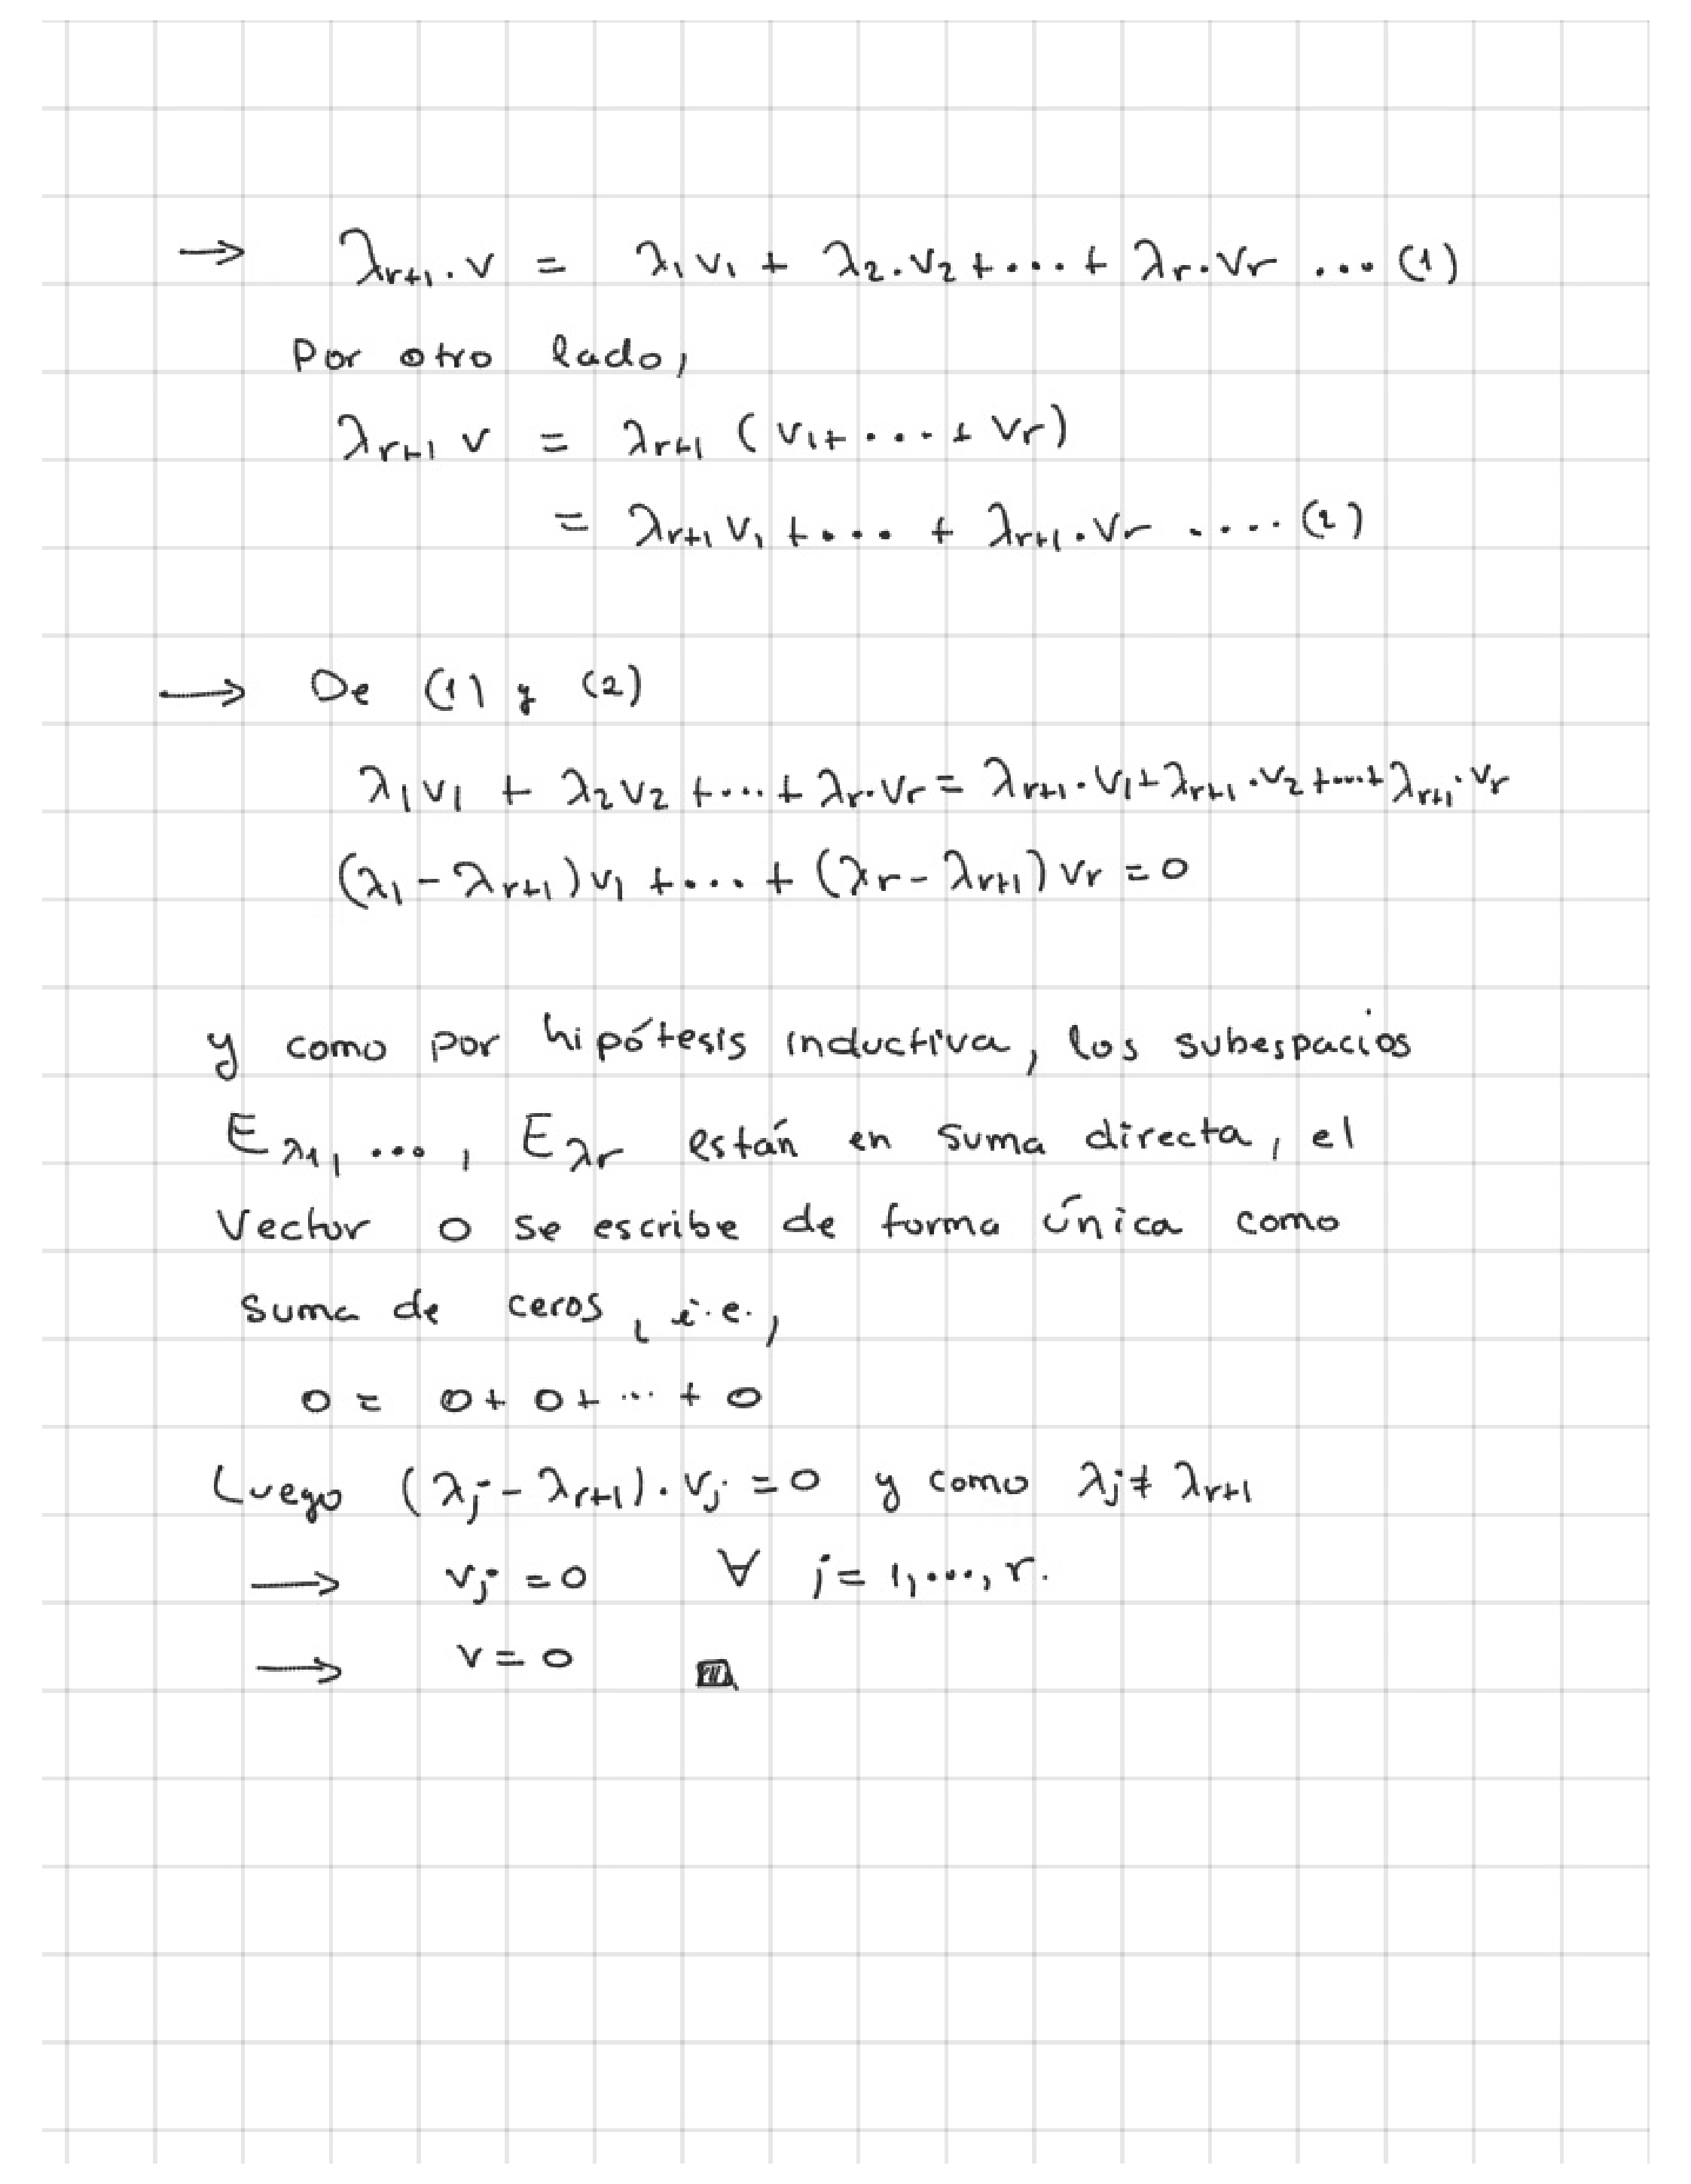 → λr+1 . v = λ1 v1 + λ2 . v2 + ... + λr . vr ... (1)
Por otro lado,
λr+1 v = λr+1 ( v1 + .... + vr )
= λr+1 v1 + ... + λr+1 . vr .... (2)
→ De (1) y (2)
λ1 v1 + λ2 v2 + ... + λr . vr = λr+1 . v1 + λr+1 . v2 + ... + λr+1 . vr
(λ1 - λr+1) v1 + ... + (λr - λr+1) vr = 0
y como por hipótesis inductiva, los subespacios
Eλ1, ..., Eλr están en suma directa, el
Vector 0 se escribe de forma única como
suma de ceros, i.e.,
0 = 0 + 0 + ... + 0
Luego (λj - λr+1) . vj = 0 y como λj ≠ λr+1
→ vj = 0 ∀ j = 1, ..., r.
→ v = 0